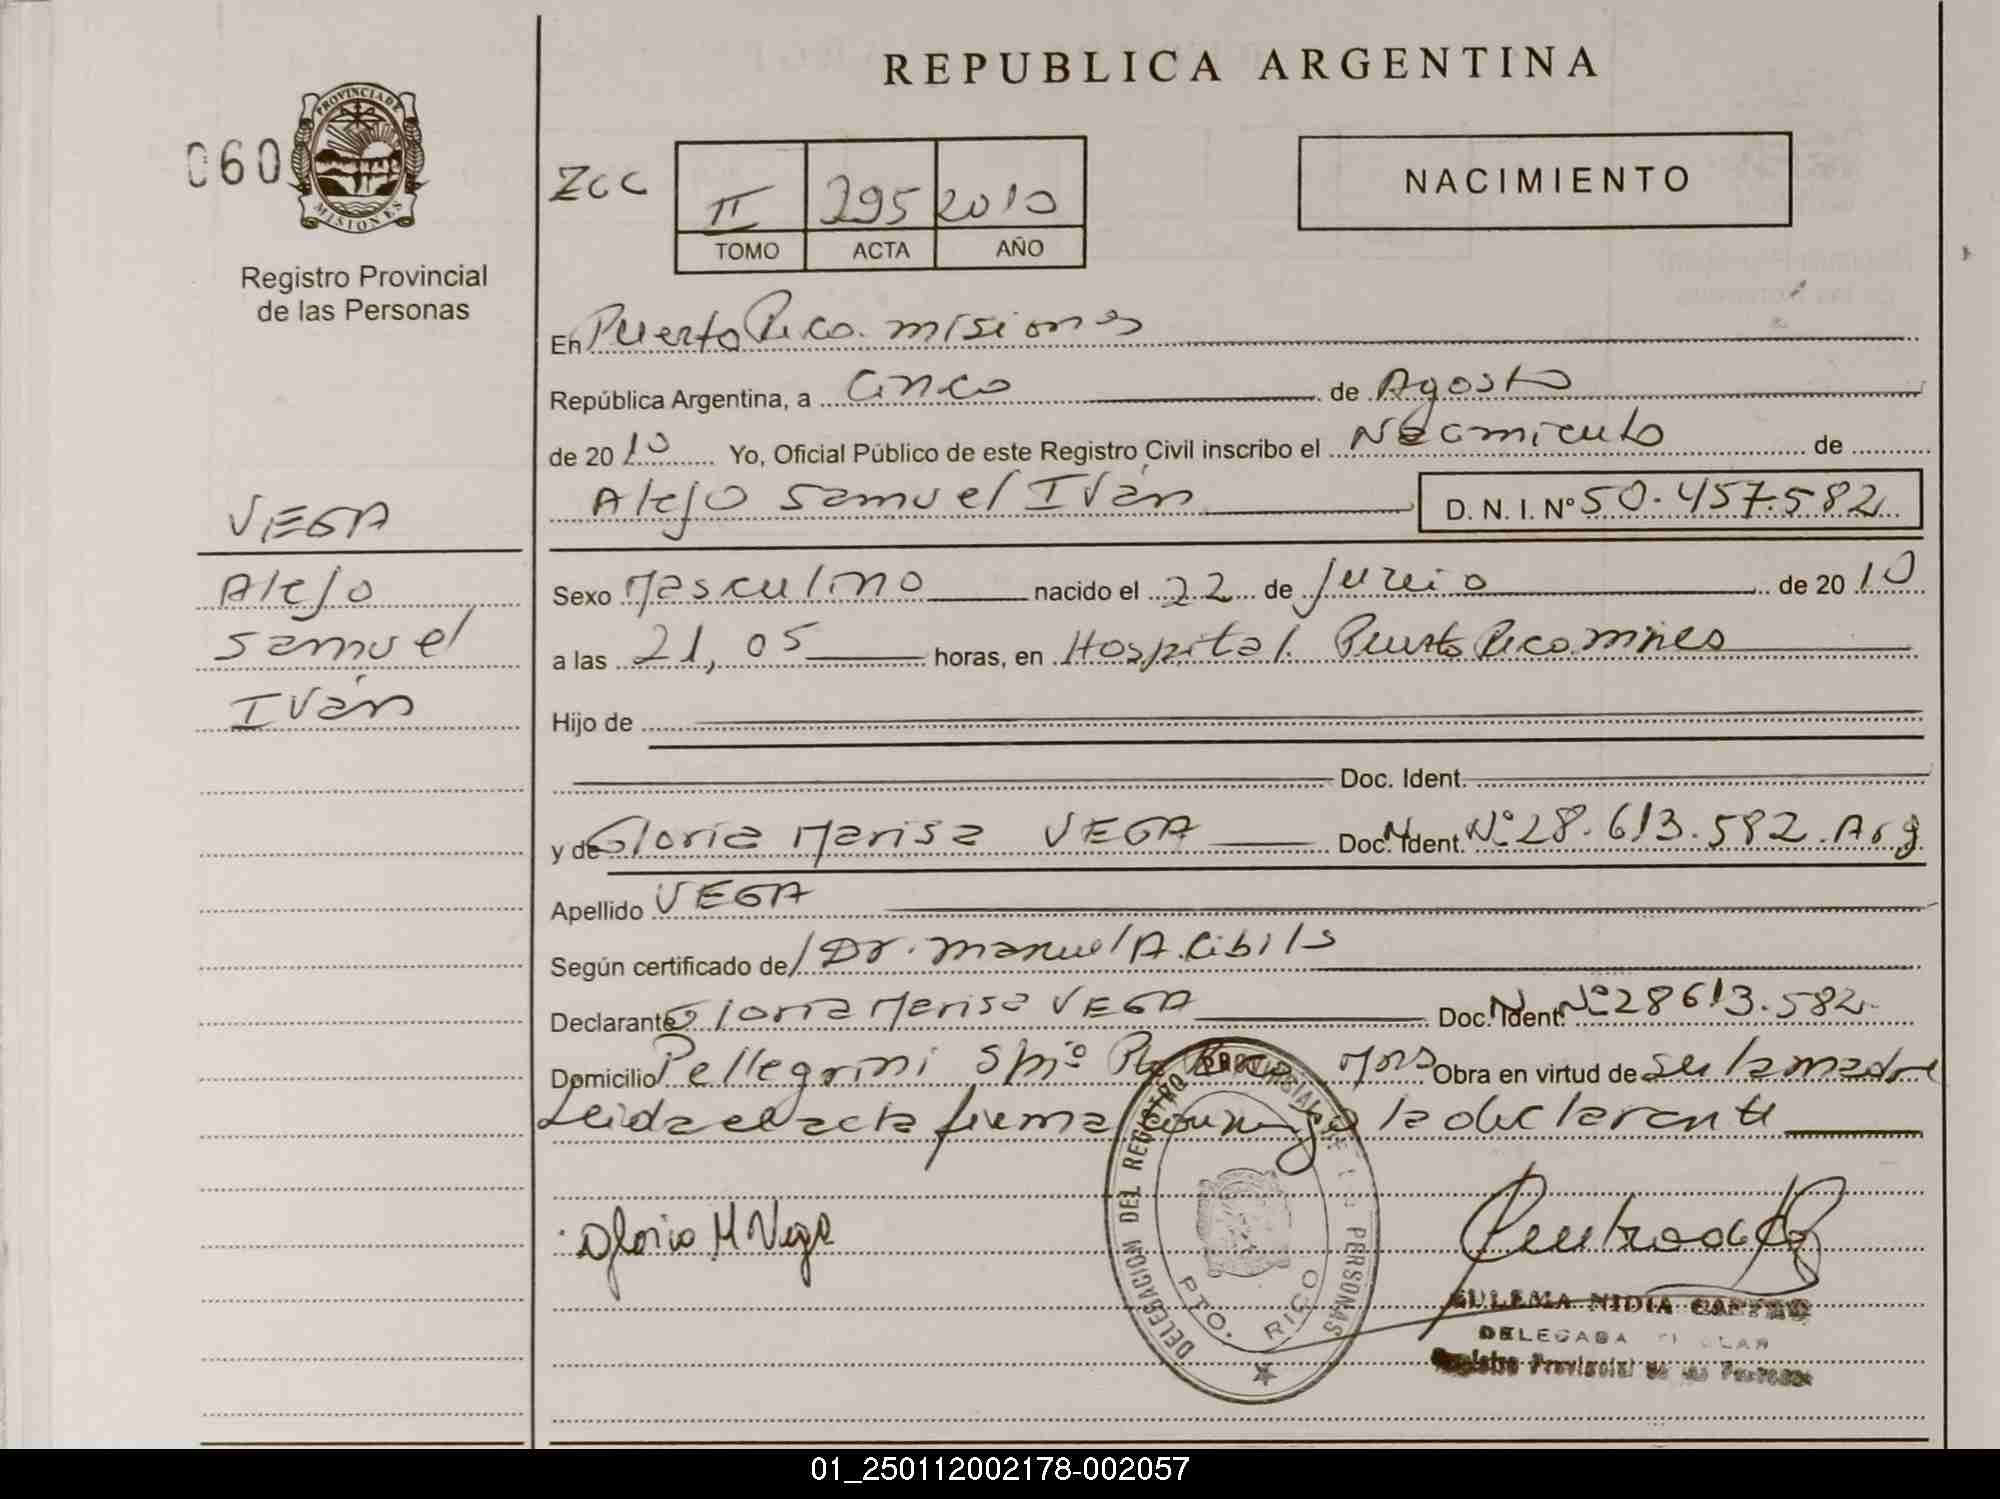 REPUBLICA ARGENTINA
060
PROVINCIA DE MISIONES
Registro Provincial
de las Personas
ZCC
II 295 2010
TOMO ACTA AÑO
NACIMIENTO
En Puerto Rico. misiones
República Argentina, a cinco de Agosto
de 2010 Yo, Oficial Público de este Registro Civil inscribo el Nacimiento de
Alejo Samuel Iván D. N. I. N° 50.457.582
VEGA
Alejo
Samuel
Iván
Sexo Masculino nacido el 22 de Junio de 2010
a las 21,05 horas, en Hospital Puerto Rico mnes
Hijo de
Doc. Ident.
y de Gloria Marisa VEGA Doc. N Ident. N° 28.613.582. Arg
Apellido VEGA
Según certificado de/ Dr. Manuel A. Cibils
Declarante Gloria Marisa VEGA Doc. N Ident. N° 28613.582.
Domicilio Pellegrini S/Nº Pto Rico Mns Obra en virtud de ser la madre
Leida el acta firma conmigo la declarante
Gloria M Vega
DELEGACION DEL REGISTRO PROVINCIAL DE LAS PERSONAS
PTO. RICO
ZULEMA NIDIA
DELEGADA TITULAR
Registro Provincial de las Personas
01_250112002178-002057